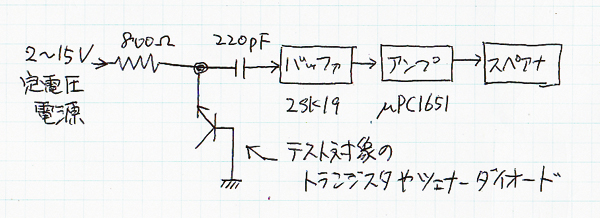 800Ω
220pF
2〜15V
定電圧
電源
バッファ
アンプ
スペアナ
2SK19
μPC1651
テスト対象の
トランジスタやツェナーダイオード